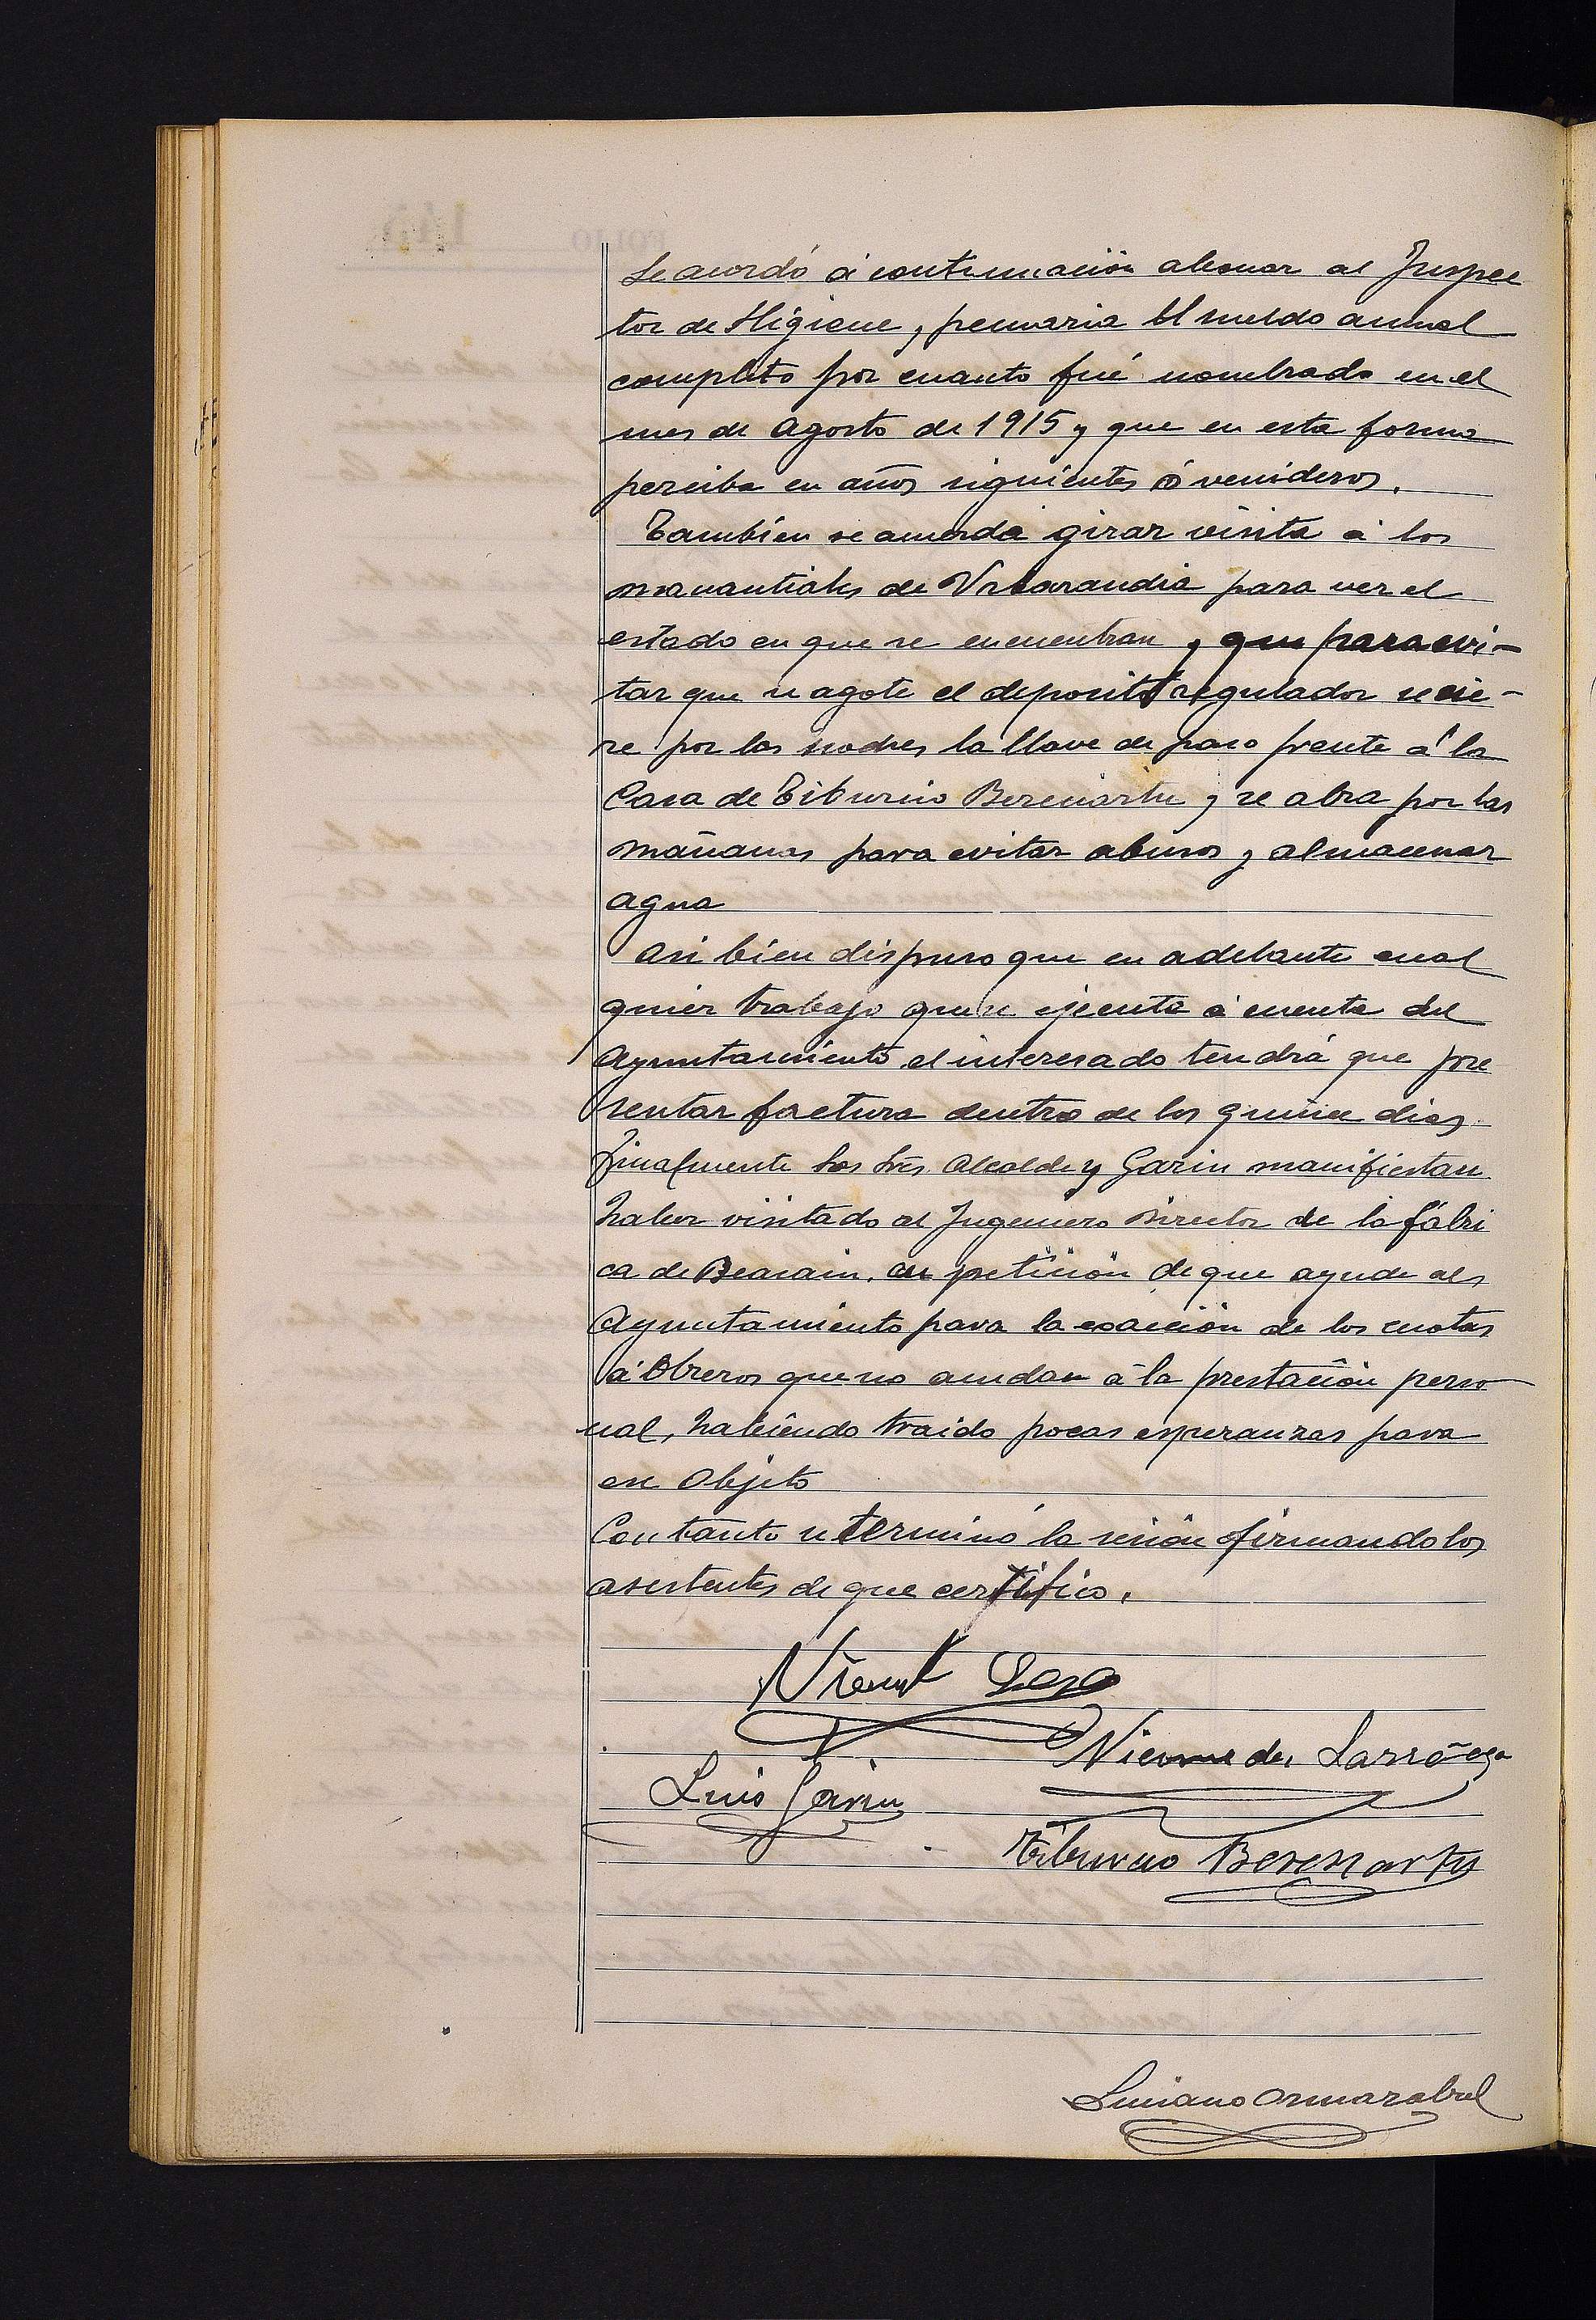 Se acordó á continuación abonar al Inspec
tor de Higiene y pecuaria el sueldo anual
completo por cuanto fué nombrado en el
mes de Agosto de 1915 y que en esta forma
perciba en años siguientes ó venideros.
Tambien se acuerda girar visita á los
manantiales de Urbarandia para ver el
estado en que se encuentran y que para evi-
tar que se agote el deposito regulador se cie-
re por las noches la llave de paso frente á la
Casa de Tiburcio Bereciartu y se abra por las
mañanas para evitar abusos y almacenar
agua
Asi bien dispuso que en adelante cual
quier trabajo que se ejecute á cuenta del
Ayuntamiento el interesado tendrá que pre
sentar factura dentro de los quince dias.
Finalmente los Srs. Alcalde y Garin manifiestan
haber visitado al Ingeniero Director de la fábri
ca de Beasain, en petición de que ayude al
Ayuntamiento para la exacción de los cuotas
á Obreros que no acudan á la prestación perso
nal, habiendo traido pocas esperanzas para
ese Objeto
Con tanto se terminó la sesión firmando los
asistentes de que certifico.
Luis Garin
Tiburcio Beresiartu
Luciano Ormazabal